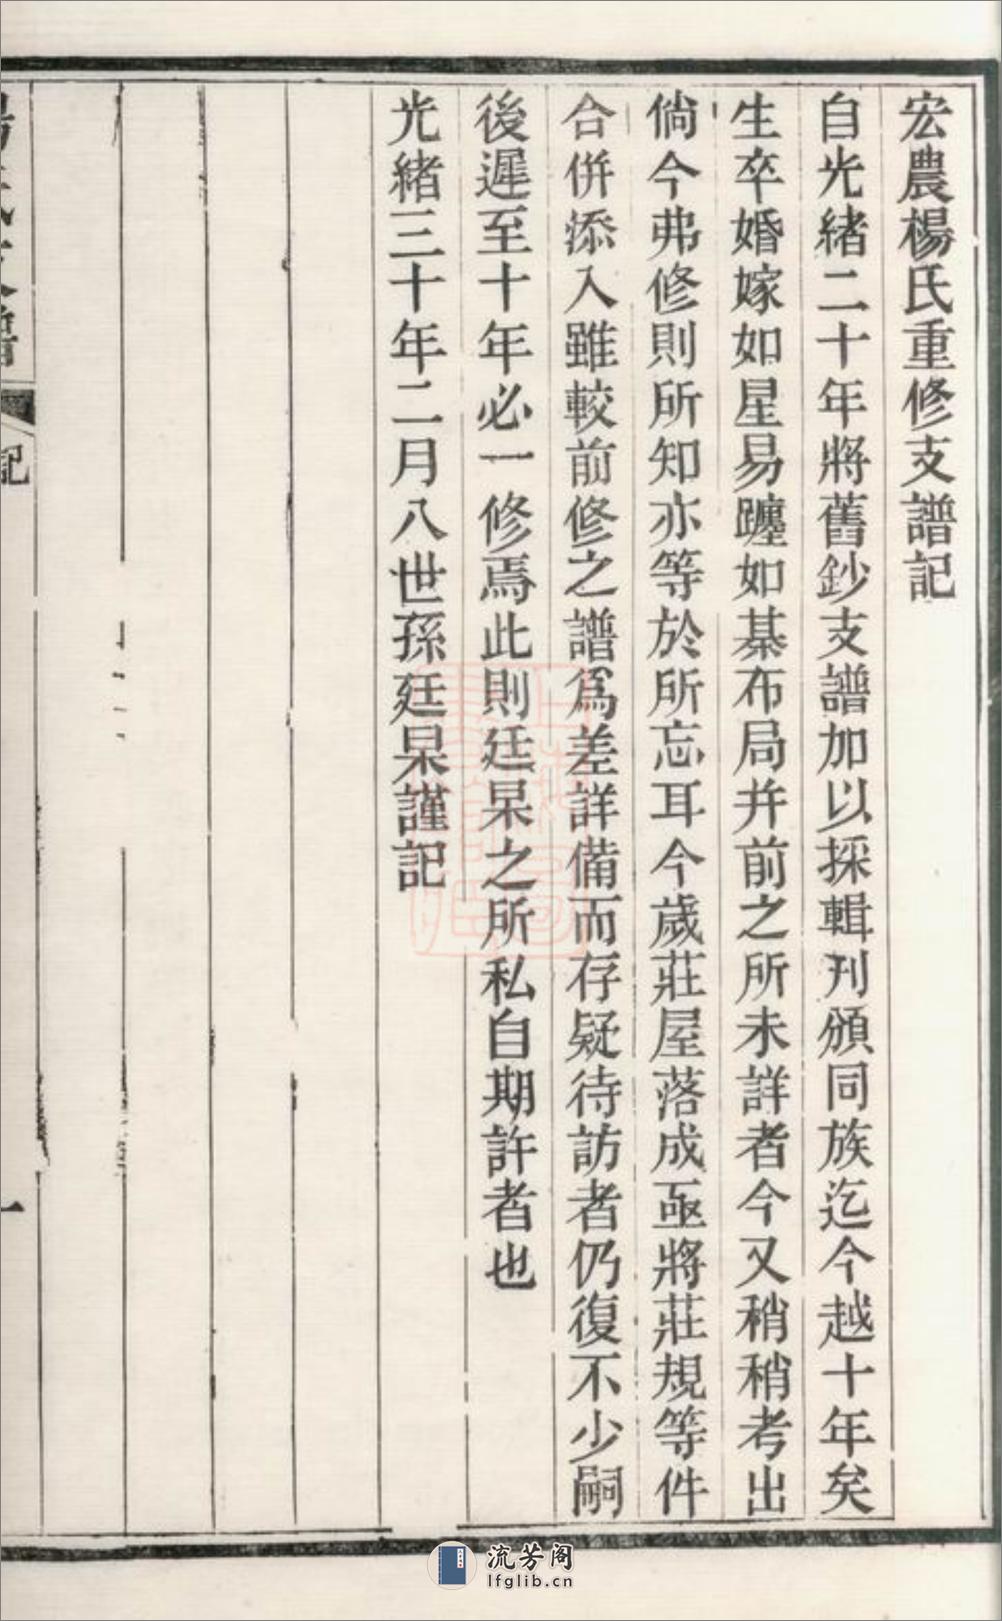 宏農楊氏重修支譜記
自光緒二十年將舊鈔支譜加以採輯刋頒同族迄今越十年矣
生卒婚嫁如星易躔如棊布局幷前之所未詳者今又稍稍考出
倘今弗修則所知亦等於所忘耳今歲莊屋落成亟將莊規等件
合併添入雖較前修之譜爲差詳備而存疑待訪者仍復不少嗣
後遲至十年必一修焉此則廷杲之所私自期許者也
光緒三十年二月八世孫廷杲謹記
記
一
流芳阁
lfglib.cn